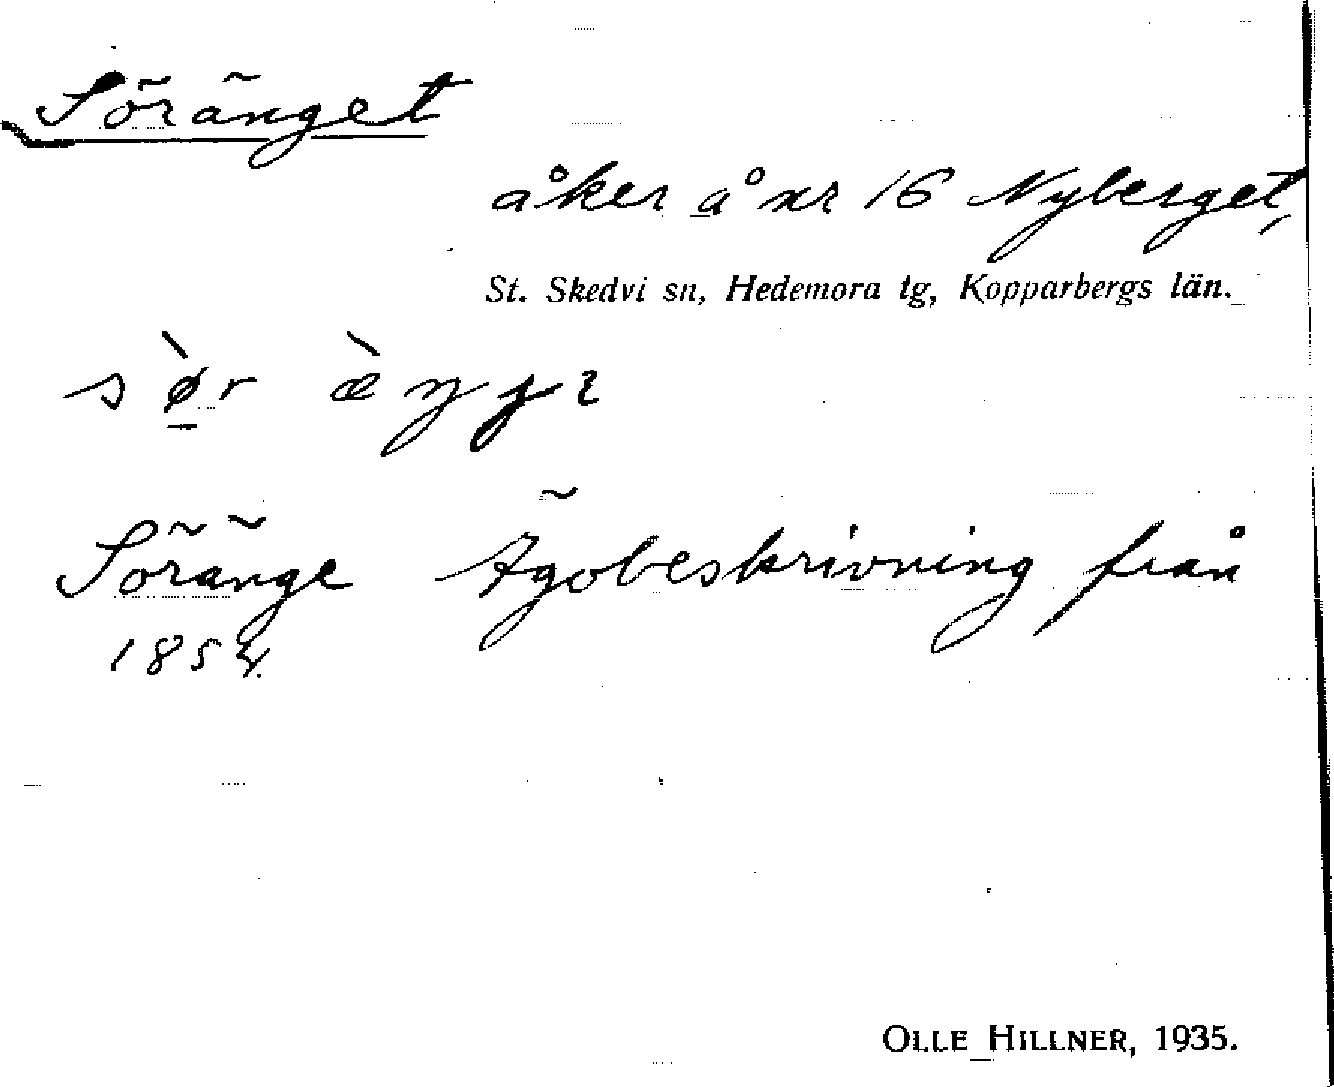 Söränget
åker å nr 16 Nyberget,
St. Skedvi sn, Hedemora tg, Kopparbergs län.
Söränge Ägobeskrivning från
1854.
OLLE HILLNER, 1935.